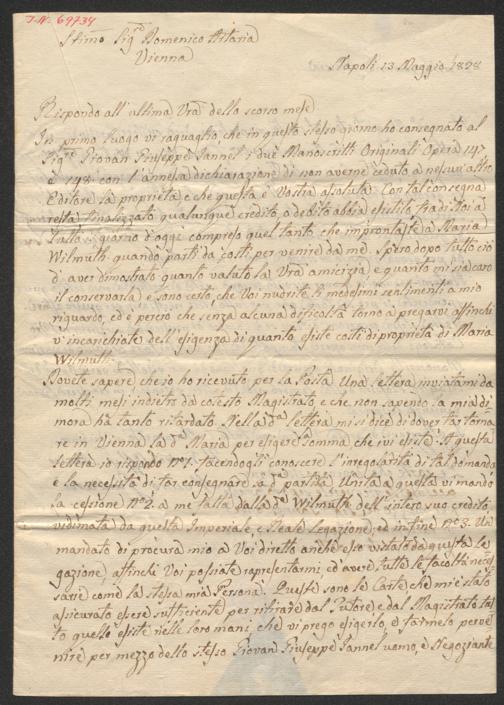 I.N. 69734
Stimo Sigre Domenico Artaria
Vienna
Napoli 13 Maggio 1828
Rispondo all'ultima Vra dello scorso mese
In primo luogo vi raguaglio, che in questo stesso giorno ho consegnato al
Sigre Giovan Giuseppe Jannel i due Manoscritti Originali Opera 147
e 148 con l'annesa dichiarazione di non averne ceduto a nesun'altro
Editore la proprietà, e che questa è Vostra asoluta. Con tal consegna
resta finalizzato qualunque credito, o debito abbia esistito tra di noi a
tutto il giorno d'oggi compreso quel tanto, che improntaste a Maria
Wilmuth quando partì da costì per venire da me. Spero dopo tutto ciò
d'aver dimostrato quanto valuto la Vra amicizia e quanto mi sia caro
il conservarla e sono certo, che Voi nudrite li medesimi sentimenti a mio
riguardo, ed è perciò che senza alcuna dificoltà torno a pregarvi affinchè
v'incarichiate dell'esigenza di quanto esiste costì di proprietà di Maria
Wilmuth.
Dovete sapere, che io ho ricevuto per la Posta Una lettera inviatami da
molti mesi indietro da cotesto Magistrato, e che non sapendo la mia di-
mora ha tanto ritardato. Nella da lettera mi si dice di dover far torna-
re in Vienna la da Maria per esigere somma che ivi esiste. A questa
lettera io rispondo No 1. facendogli conoscere l'irregolarità di tal domanda
e la necessità di far consegnare la da partita. Unita a questa vi mando
la cessione No 2. a me fatta dalla da Wilmuth dell'intero suo credito,
vidimata da questa Imperiale, e Reale Legazione; ed in fine No 3. Un
mandato di procura mio a Voi diretto anche esso vistato da questa Le
gazione, affinchi Voi possiate rapresentarmi ed avere tutte le facoltà neces
sarie come la stessa mia Persona. Queste sono le Carte che mi è stato
assicurato esere sufficiente per ritirare dal Tutore, e dal Magistrato tut
to quello esiste nelle loro mani, che vi prego esigerlo, e farmelo perve
nire per mezzo dello stesso Giovan Giuseppe Jannel uomo, e Negoziante